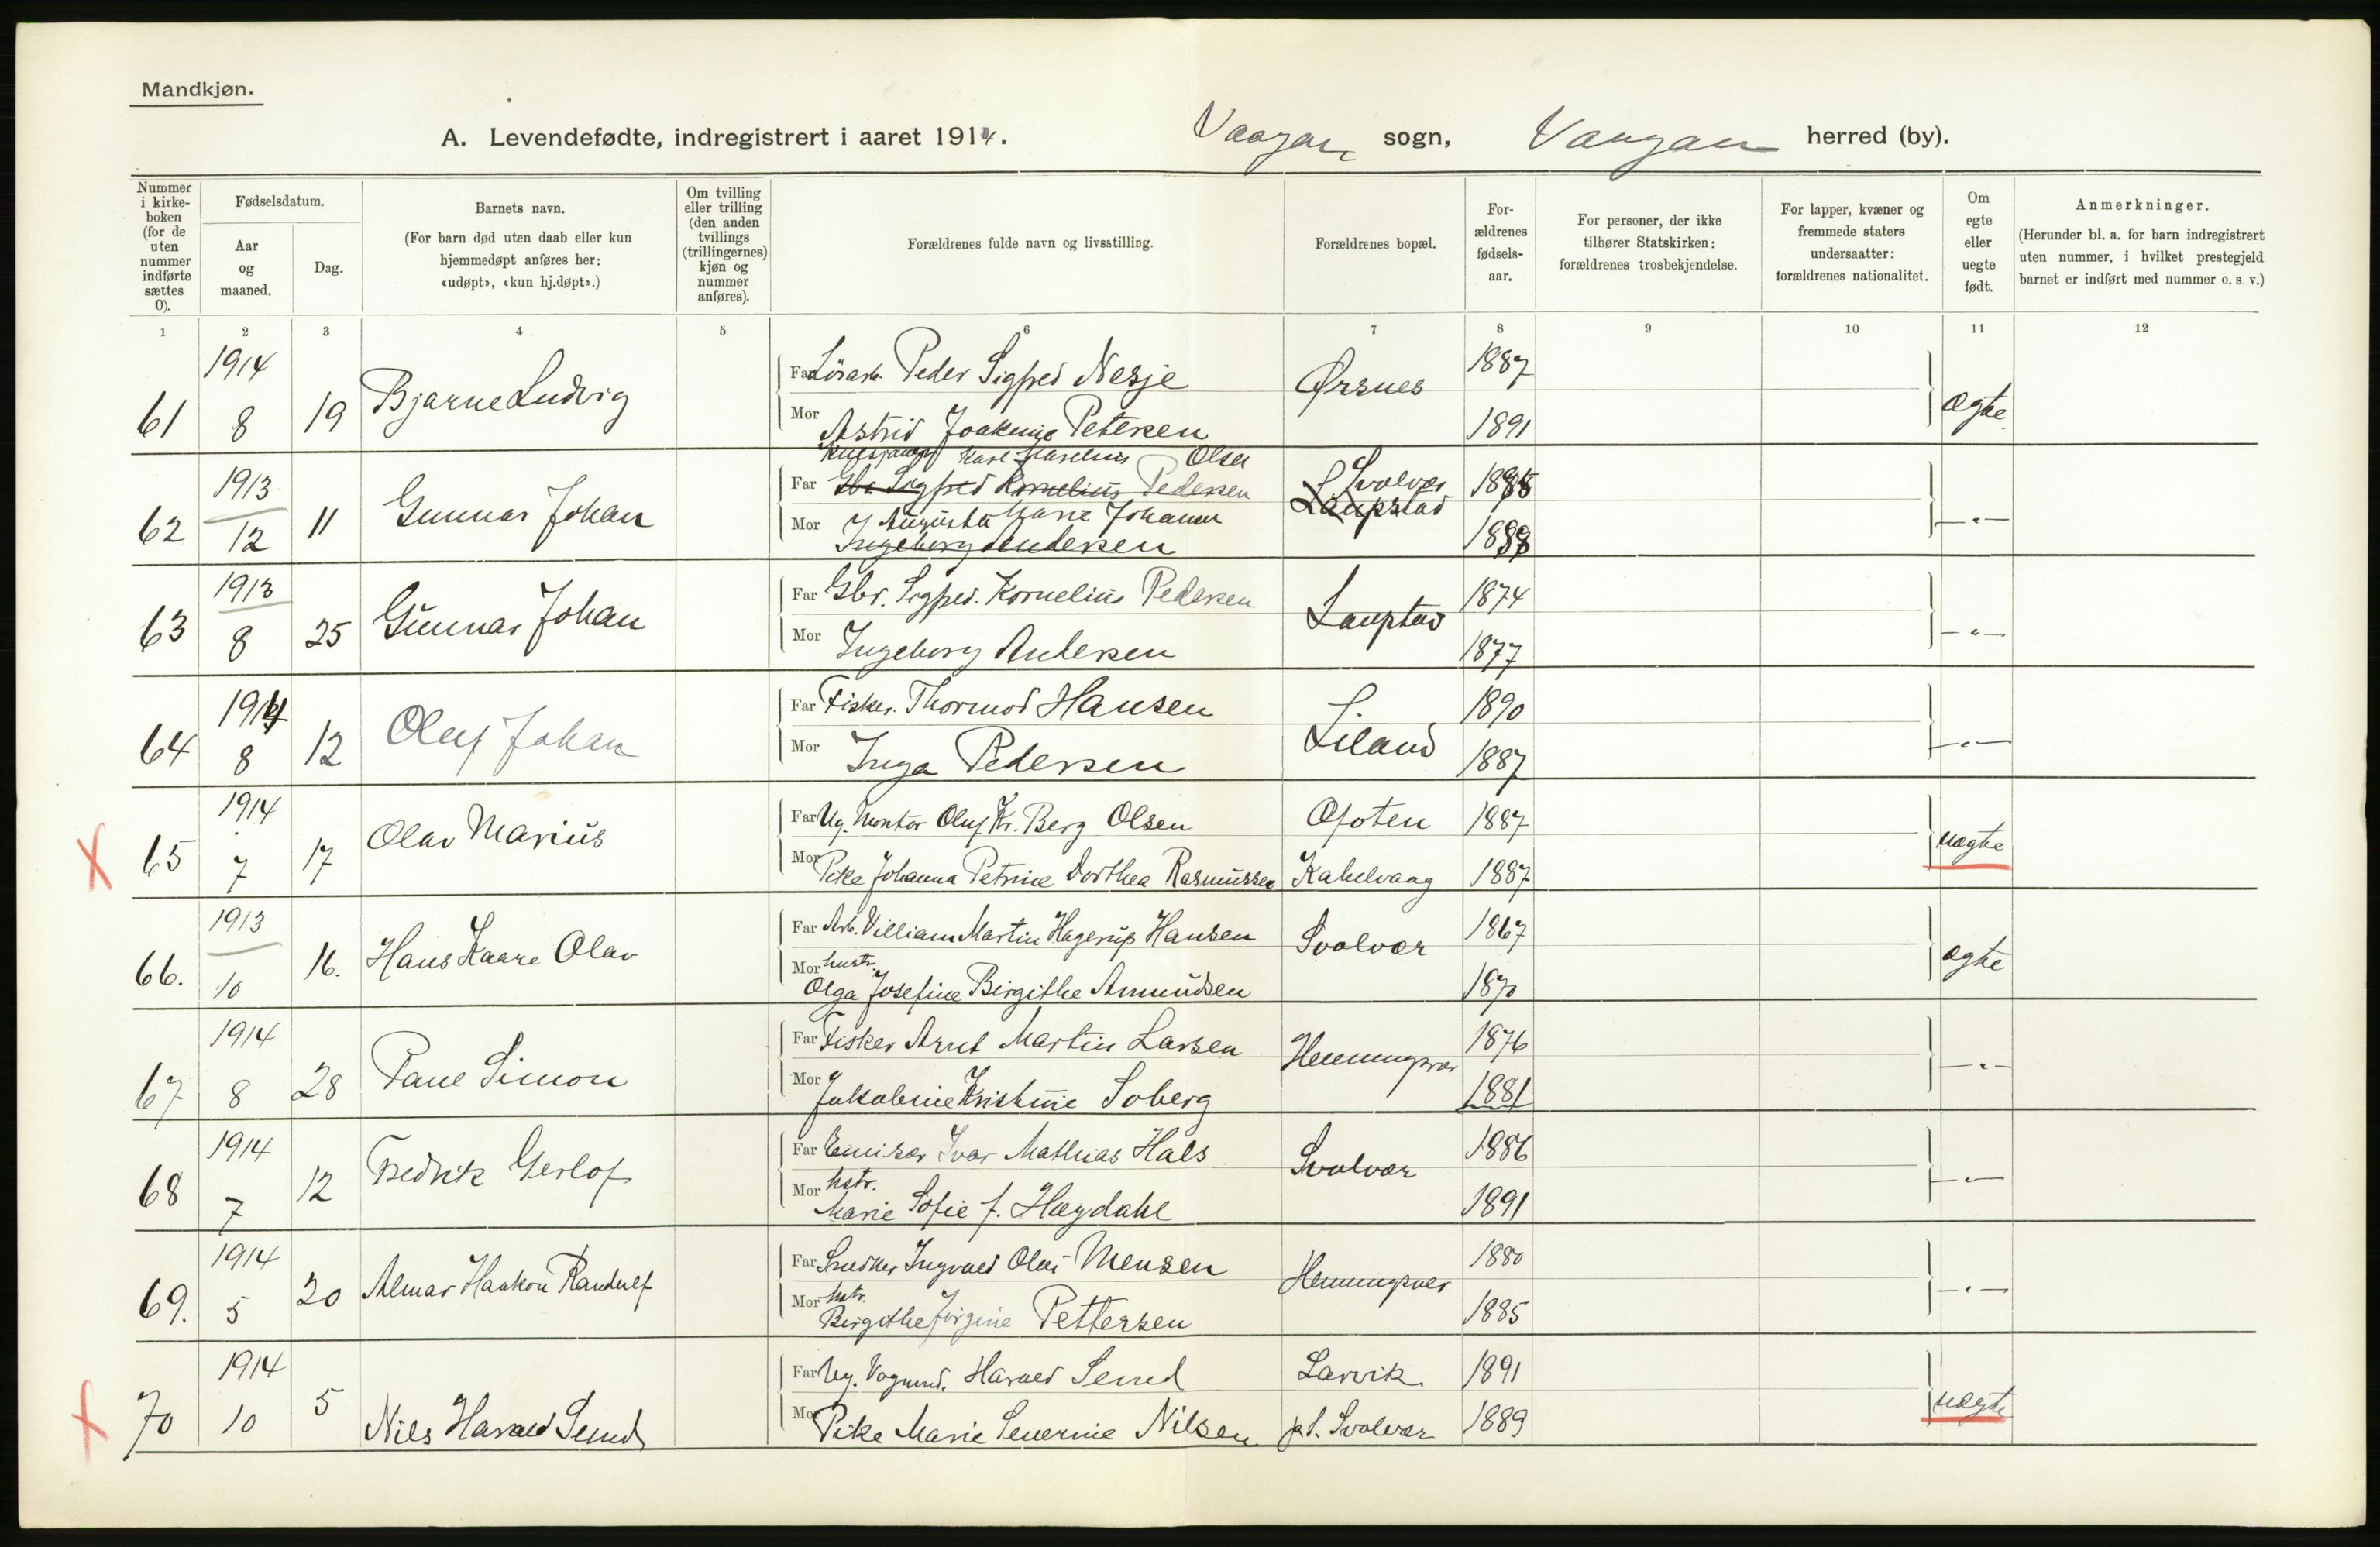 Mandkjøn.
A. Levendefødte, indregistrert i aaret 1914. Vaagan sogn, Vaagan herred (by).
Nummer i kirkeboken (for de uten nummer indførte sættes 0).
Fødselsdatum.
Aar og maaned.
Dag.
Barnets navn.
(For barn død uten daab eller kun hjemmedøpt anføres her: «udøpt», «kun hj.døpt».)
Om tvilling eller trilling (den anden tvillings (trillingernes) kjøn og nummer anføres).
Forældrenes fulde navn og livsstilling.
Forældrenes bopæl.
Forældrenes fødselsaar.
For personer, der ikke tilhører Statskirken: forældrenes trosbekjendelse.
For lapper, kvæner og fremmede staters undersaatter: forældrenes nationalitet.
Om egte eller uegte født.
Anmerkninger.
(Herunder bl. a. for barn indregistrert uten nummer, i hvilket prestegjeld barnet er indført med nummer o. s. v.)
1 2 3 4 5 6 7 8 9 10 11 12
61 1914 8 19 Bjarne Ludvig
Far Peder Sigfred Nesje Ørsnes 1887
Mor Astrid Joakime Petersen 1891 ægte
Karl Marelius Olsen
62 1913 12 11 Gunnar Johan
Far Gbr. Sigfred Kornelius Pedersen Svolvær Laupstad 1885
Mor Augusta Marie Johanne
Ingeborg Andersen 1888 -"-
63 1913 8 25 Gunnar Johan
Far Gbr. Sigfred. Kornelius Pedersen Laupstad 1874
Mor Ingeborg Andersen 1877 -"-
64 1914 8 12 Oluf Johan
Far Fisker. Thormod Hansen Liland 1890
Mor Inga Pedersen 1887 -"-
X 65 1914 7 17 Olav Marius
Far Ug. Montør Oluf Kr. Berg Olsen Ofoten 1887
Mor Pike Johanna Petrine Dorthea Rasmussen Kabelvaag 1887 uægte
66. 1913 10 16. Hans Kaare Olav
Far Arb. Villiam Martin Hagerup Hansen Svolvær 1867
Mor hustr. Olga Josefine Birgithe Amundsen 1870 ægte
67 1914 8 28 Paul Simon
Far Fisker Arnt Martin Larsen Henningsvær 1876
Mor Jakobine Kristine Soberg 1881 -"-
68 1914 7 12 Fredrik Gerlof
Far Emisær Ivar Mathias Hals Svolvær 1886
Mor hstr. Marie Sofie f. Høydahl 1891 -"-
69. 1914 5 20 Almar Haakon Randulf
Far Snedker Ingvald Olai Mensen Henningsvær 1880
Mor hstr. Birgithe Jørgine Pettersen 1885 -"-
X 70 1914 10 5 Nils Harald Sund
Far Ug. Vognmd. Harald Sund Larvik 1891
Mor Pike Marie Severine Nilsen pt. Svolvær 1889 uægte